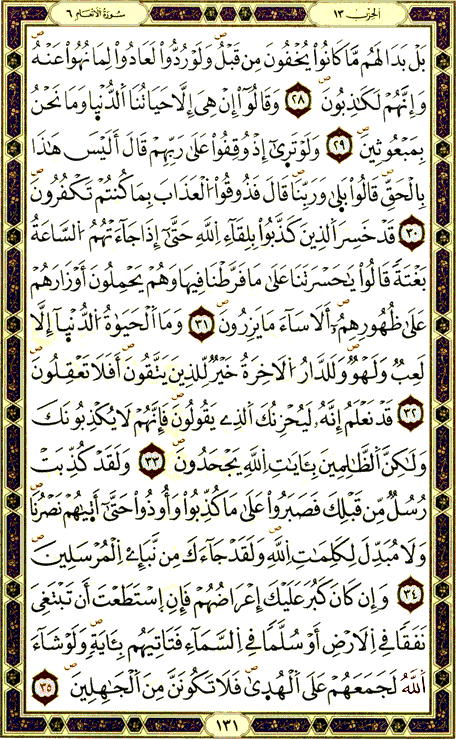 سُورَةُ الأَنْعَامِ ٦ الحِزْبُ ١٣
بَلْ بَدَا لَهُم مَّا كَانُواْ يُخْفُونَ مِن قَبْلُ وَلَوْ رُدُّواْ لَعَادُواْ لِمَا نُهُواْ عَنْهُ
وَإِنَّهُمْ لَكَٰذِبُونَ ٢٨ وَقَالُوٓاْ إِنْ هِىَ إِلَّا حَيَاتُنَا اَ۬لدُّنْيا وَمَا نَحْنُ
بِمَبْعُوثِينَ ٢٩ وَلَوْ تَرٜىٰٓ إِذْ وُقِفُواْ عَلَىٰ رَبِّهِمْ قَالَ أَلَيْسَ هَٰذَا
بِالْحَقِّ قَالُواْ بَلٜىٰ وَرَبِّنَا قَالَ فَذُوقُواْ اُ۬لْعَذَابَ بِمَا كُنتُمْ تَكْفُرُونَ
٣٠ قَدْ خَسِرَ اَ۬لذِينَ كَذَّبُواْ بِلِقَآءِ اِ۬للَّهِ حَتَّىٰٓ إِذَا جَآءَتْهُمُ اُ۬لسَّاعَةُ
بَغْتَةً قَالُواْ يَٰحَسْرَتَنَا عَلَىٰ مَا فَرَّطْنَا فِيهَا وَهُمْ يَحْمِلُونَ أَوْزَارَهُمْ
عَلَىٰ ظُهُورِهِمُۥٓ أَلَا سَآءَ مَا يَزِرُونَ ٣١ وَمَا اَ۬لْحَيَوٰةُ اُ۬لدُّنْيآ إِلَّا
لَعِبٌ وَلَهْوٌ وَلَلدَّارُ اُ۬لَاخِرَةُ خَيْرٌ لِّلذِينَ يَتَّقُونَ أَفَلَا تَعْقِلُونَ
٣٢ قَدْ نَعْلَمُ إِنَّهُۥ لَيُحْزِنُكَ اَ۬لذِے يَقُولُونَ فَإِنَّهُمْ لَا يُكْذِبُونَكَ
وَلَٰكِنَّ اَ۬لظَّٰلِمِينَ بِـَٔايَٰتِ اِ۬للَّهِ يَجْحَدُونَ ٣٣ وَلَقَدْ كُذِّبَتْ
رُسُلٌ مِّن قَبْلِكَ فَصَبَرُواْ عَلَىٰ مَا كُذِّبُواْ وَأُوذُواْ حَتَّىٰٓ أَتٜيٰهُمْ نَصْرُنَا
وَلَا مُبَدِّلَ لِكَلِمَٰتِ اِ۬للَّهِ وَلَقَدْ جَآءَكَ مِن نَّبَإِےْ اِ۬لْمُرْسَلِينَ
٣٤ وَإِن كَانَ كَبُرَ عَلَيْكَ إِعْرَاضُهُمْ فَإِنِ اِ۪سْتَطَعْتَ أَن تَبْتَغِىَ
نَفَقًا فِے اِ۬لَارْضِ أَوْ سُلَّمًا فِے اِ۬لسَّمَآءِ فَتَاتِيَهُم بِـَٔايَةٍ وَلَوْ شَآءَ
اَ۬للَّهُ لَجَمَعَهُمْ عَلَى اَ۬لْهُدٜىٰ فَلَا تَكُونَنَّ مِنَ اَ۬لْجَٰهِلِينَ ٣٥
١٣١